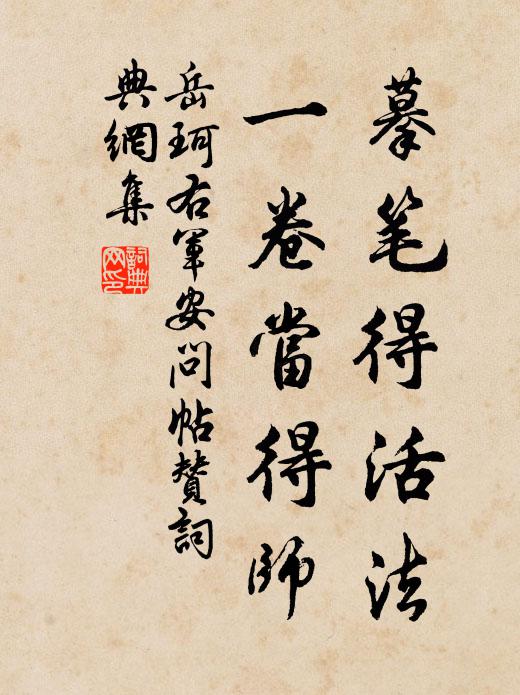 摹笔得活法
一卷當得師
岳珂右軍安問帖贊詞
典網集
詞典
网印